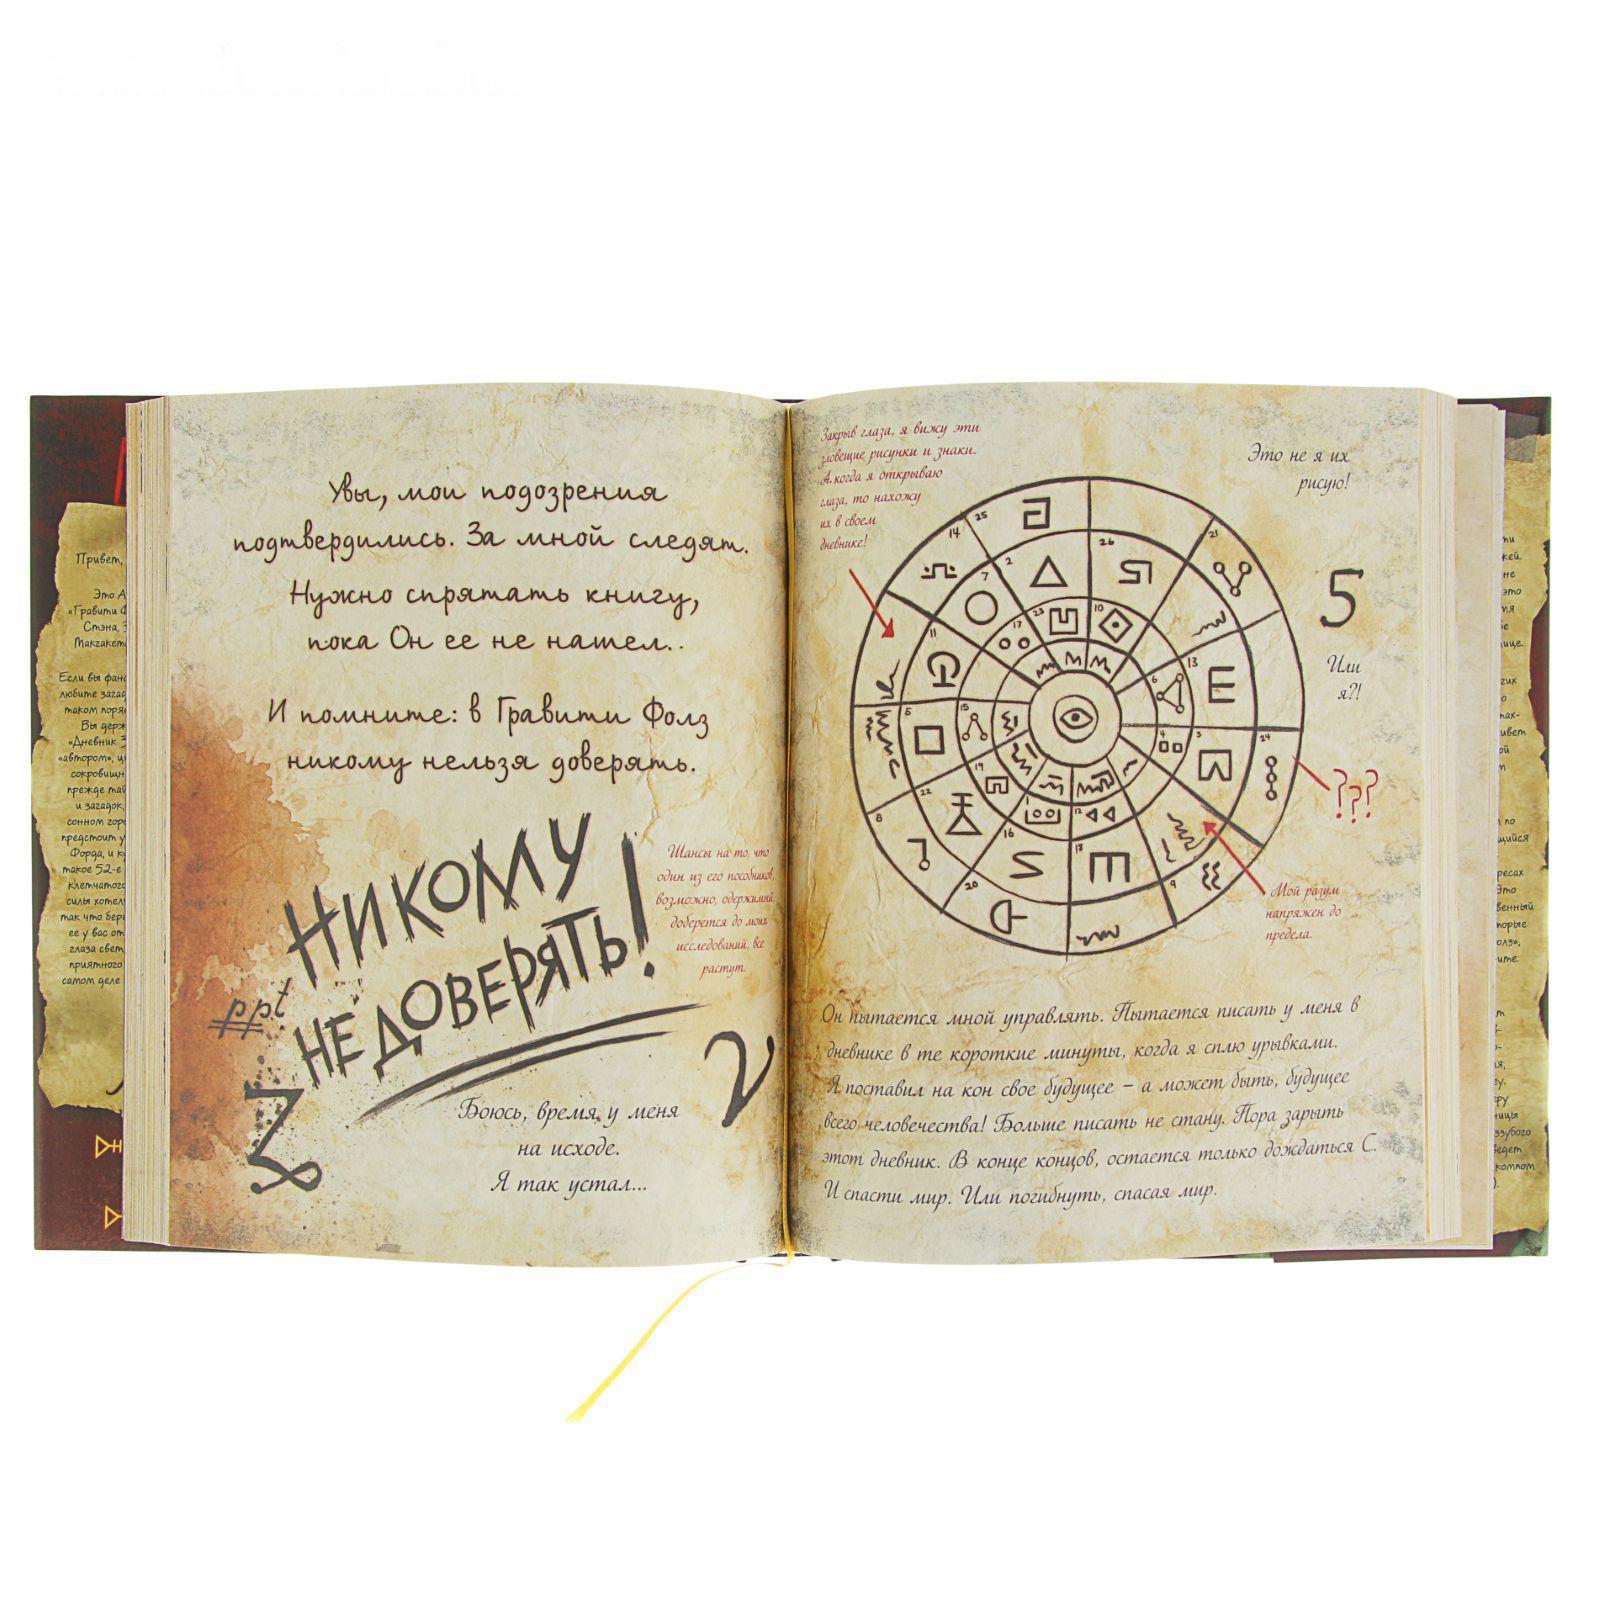 Увы, мои подозрения
подтвердились. За мной следят.
Нужно спрятать книгу,
пока Он ее не нашел..
И помните: в Гравити Фолз
никому нельзя доверять.
НИКОМУ
НЕ ДОВЕРЯТЬ!
Шансы на то, что
один из его пособников,
возможно, одержимый,
доберется до моих
исследований, все
растут.
ppt
Боюсь, время у меня
на исходе.
Я так устал...
Закрыв глаза, я вижу эти
зловещие рисунки и знаки.
А когда я открываю
глаза, то нахожу
их в своем
дневнике!
Это не я их
рисую!
5
Или
я?!
???
Мой разум
напряжен до
предела.
25
14
2
26
21
7
23
10
17
11
13
6
5
15
4
3
24
19
22
8
1
12
16
18
20
9
Он пытается мной управлять. Пытается писать у меня в
дневнике в те короткие минуты, когда я сплю урывками.
Я поставил на кон свое будущее – а может быть, будущее
всего человечества! Больше писать не стану. Пора зарыть
этот дневник. В конце концов, остается только дождаться С.
И спасти мир. Или погибнуть, спасая мир.
Привет,
Это А
«Гравити Ф
Стэна,
Макгакет
Если вы фан
любите загад
таком поря
Вы держ
«Дневник 3
«автором», ц
сокровищн
прежде тай
и загадок,
сонном горо
предстоит у
Форда, и к
такое 52-е
клетчатого
силы хотел
так что бер
ее у вас от
глаза свет
приятного
самом деле